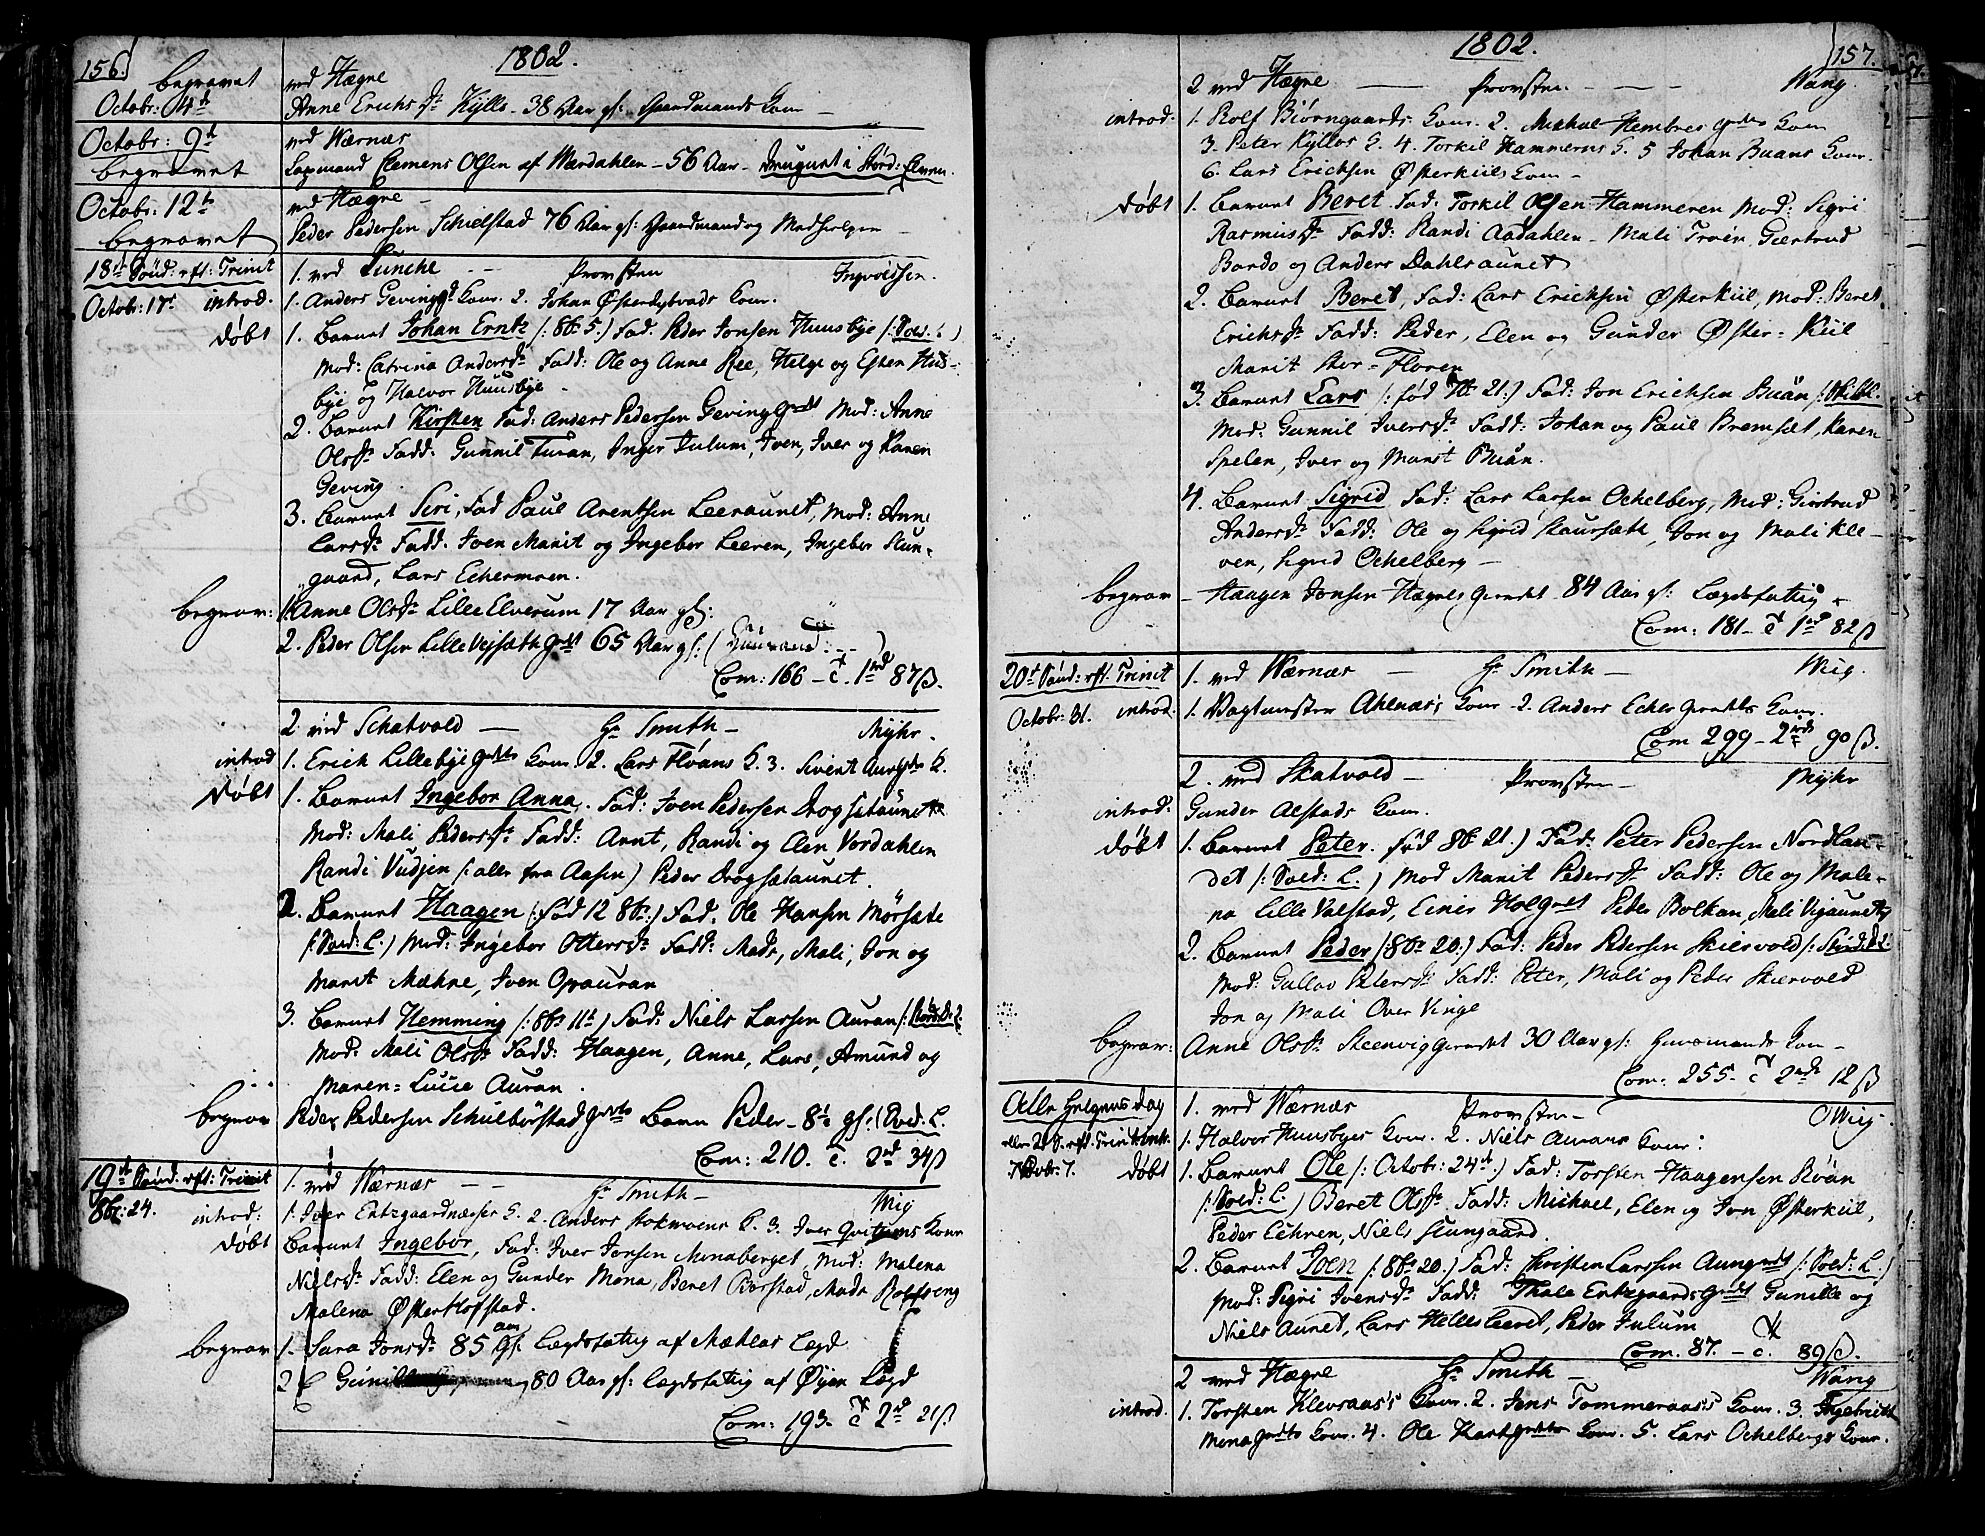 156.
1802.
begravet
ved Hegne
Octobr: 4de
Anne Erichsdr Kyllo - 38 Aar gl: Gaardmands Kone
Octobr: 9de
ved Wærnæs
begravet
Clemens Olsen af Wærdahlen - 56 Aar - i Stord: Elven.
Octobr: 12te
ved Hegne
begravet
Peder Pedersen Schielstad 76 Aar gl: Gaardmand og Medhielper
18de Sønd: eft: Trinit
1. ved Lunche - - Provsten Ingvoldsen.
Octobr: 17de introd.
1. Anders Geving Konr. 2. Johan Østerdybvads Konr.
døbt
1. Barnet Johan Erntz /: 8br 5:/ Fad. Peder Jonsen Huusbye /: Sold: :/
Mod: Catrina Andersdr Fadd: Ole og Anne Ree, Helge og Esten Hus-
bye og Halvor Huusbye
2. Barnet Kirsten Fad: Anders Pedersen Geving Mod: Anne
Olsdr Fadd: Gunnil Turan, Inger Julum, Iven, Iver og Karen
Geving
3. Barnet Siri, Fad Paul Arentsen Leeraunet, Mod: Anne
Larsdr Fadd. Iven Marit og Ingebor Leeren, Ingebor Stun-
gaard, Lars Echermoen.
begrav:
1. Anne Olsdr Lille Elverum 17 Aar gl:
2. Peder Olsen Lille 65 Aar gl:
Com: 166 - c. 1rd 87 ß.
2 ved Schatvold - Hr Smith - Myhr.
introd
1. Erich Lillebye Konr. 2. Lars Floans K. 3. Sivert K.
døbt
1. Barnet Ingebor Anna. Fad: Iven Pedersen Drogsetaunet
Mod: Mali Pedersdr Fadd: Arnt, Randi og Elen Vordahlen
Randi Vudjen /: alle fra Aasen) Peder Drogsetaunet.
2. Barnet Haagen /: fød 12 8br:/ Fad. Ole Hansen Mørsete
/: Sold: L.) Mod: Ingebor Ottersdr Fadd: Mads, Mali, Jon og
Marit Mæhne, Iven Opauran
3. Barnet Hemming /: 8br 11te) Fad: Niels Larsen Auran
Mod: Mali Olsdr Fadd: Haagen, Anne, Lars, Amund og
Maren= Lucie Auran.
begrav
Peder Pedersen Schulbørstad Barn Peder - 8 gl.
Com: 210. c. 2rd 34 ß
19de Sønd: eft: Trinit
1. ved Wærnæs - - Hr Smith - Mig
8br: 24. introd:
2. Anders Stokmoens K. 3. Iver Konr
døbt
Barnet Ingebor, Fad: Iver Jonsen Monaberget, Mod: Malena
Nielsdr Fadd: Elen og Gunder Mona, Beret Børstad, Mads Rolfseng
Malena Øster Hofstad.
begrav
1. Sara Jonsdr 85 aar gl. Legdsfattig af Mæhlas Legd
2 80 Aar gl: Legdsfattig af Øyen Legd
Com: 193. c 2rd 21 ß
1802.
157.
2 ved Hegne - Provsten - - - Wang.
introd.
1. Rolf Biørngaards Konr. 2. Michal Hembres Kone
3. Peter Kyllos K. 4. Torkil Hammerens K. 5 Johan Buans Konr.
6. Lars Erichsen Østerkiils Kone -
døbt
1. Barnet Beret. Fad: Torkil Olsen Hammeren Mod: Sigri
Rasmusdr Fadd: Randi Aadahlen - Mali Troen Giertrud
Bordo og Anders Dahlsaunet
2. Barnet Beret, Fad: Lars Erichsen Østerkiil, Mod: Beret
Erichsdr Fadd: Peder, Elen og Gunder Øster= Kiil
Marit Stor= Floren
3. Barnet Lars /: fød 7br 21:/ Fad: Jon Erichsen Buan
Mod: Gunnil Iversdr Fadd: Johan og Paul Bremset, Karen
Spelen, Iver og Marit Buan.
4. Barnet Sigrid Fad: Lars Larsen Ochelberg, Mod: Giertrud
Andersdr Fadd: Ole og Sigrid Skaursæth, Jon og Mali Kle-
ven, Sigrid Ochelberg -
begrav
- Haagen Jonsen Hegnes 84 Aar gl: Legdsfattig.
Com: 181 - c 1rd 82 ß
20de Sønd: eft: Trinit
1. ved Wærnæs - Hr Smith - Mig.
Octobr: 31. introd.
1. Vagtmester Konr - 2. Anders Echer Konr.
Com 299 - 2rd 90 ß.
2. ved Skatvold - Provsten - Myhr
introd:
Gunder Alstads Konr.
døbt
1. Barnet Peter. fød 8br 21.) Fad: Peter Pedersen Nordlan-
det /: Sold: L.) Mod Marit Pedersdr Fadd: Ole og Male-
na Lille Valstad, Einer Peder Bolkan, Mali
2. Barnet Peder /: 8br 20:/ Fad: Peder Pedersen Skiervold
Mod: Gullov Petersdr Fadd: Peter, Mali og Peder Skiervold
Jon og Mali Over Vinge
begrav:
Anne Olsdr Steenvig 30 Aar gl: Huusmands Kon -
Com: 255 - c 2rd 12 ß
Alle Helgens Dag
1. ved Wærnæs Provsten - Mig.
eller 21 S. eft: Trin introd.
1. Halvor Huusbyes Konr. 2. Niels Aurans Konr:
Novbr: 7. døbt
1. Barnet Ole /: Octobr: 24de) Fad: Torsten Haagensen Roan
/: Sold: L.) Beret Olsdr Fadd: Michael, Elen og Jon Østerkiil,
Peder Echren, Niels Stungaard.
2. Barnet Iven /: 8br 20.) Fad: Christen Larsen /: Sold: L.)
Mod: Sigri Ivensdr Fadd: Thale Gunille og
Niels Aunet, Lars Helles Leeret, Peder Julum
Com. 87. - c. 89 ß.
2 ved Hegne Hr Smith - Wang
introd.
1. Torsten Klevsaas's Konr. 2. Jens Tommeraas's Konr. 3. Ingebrikt
Mona Konr. 4. Ole Konr. 5. Lars Ochelbergs Konr.